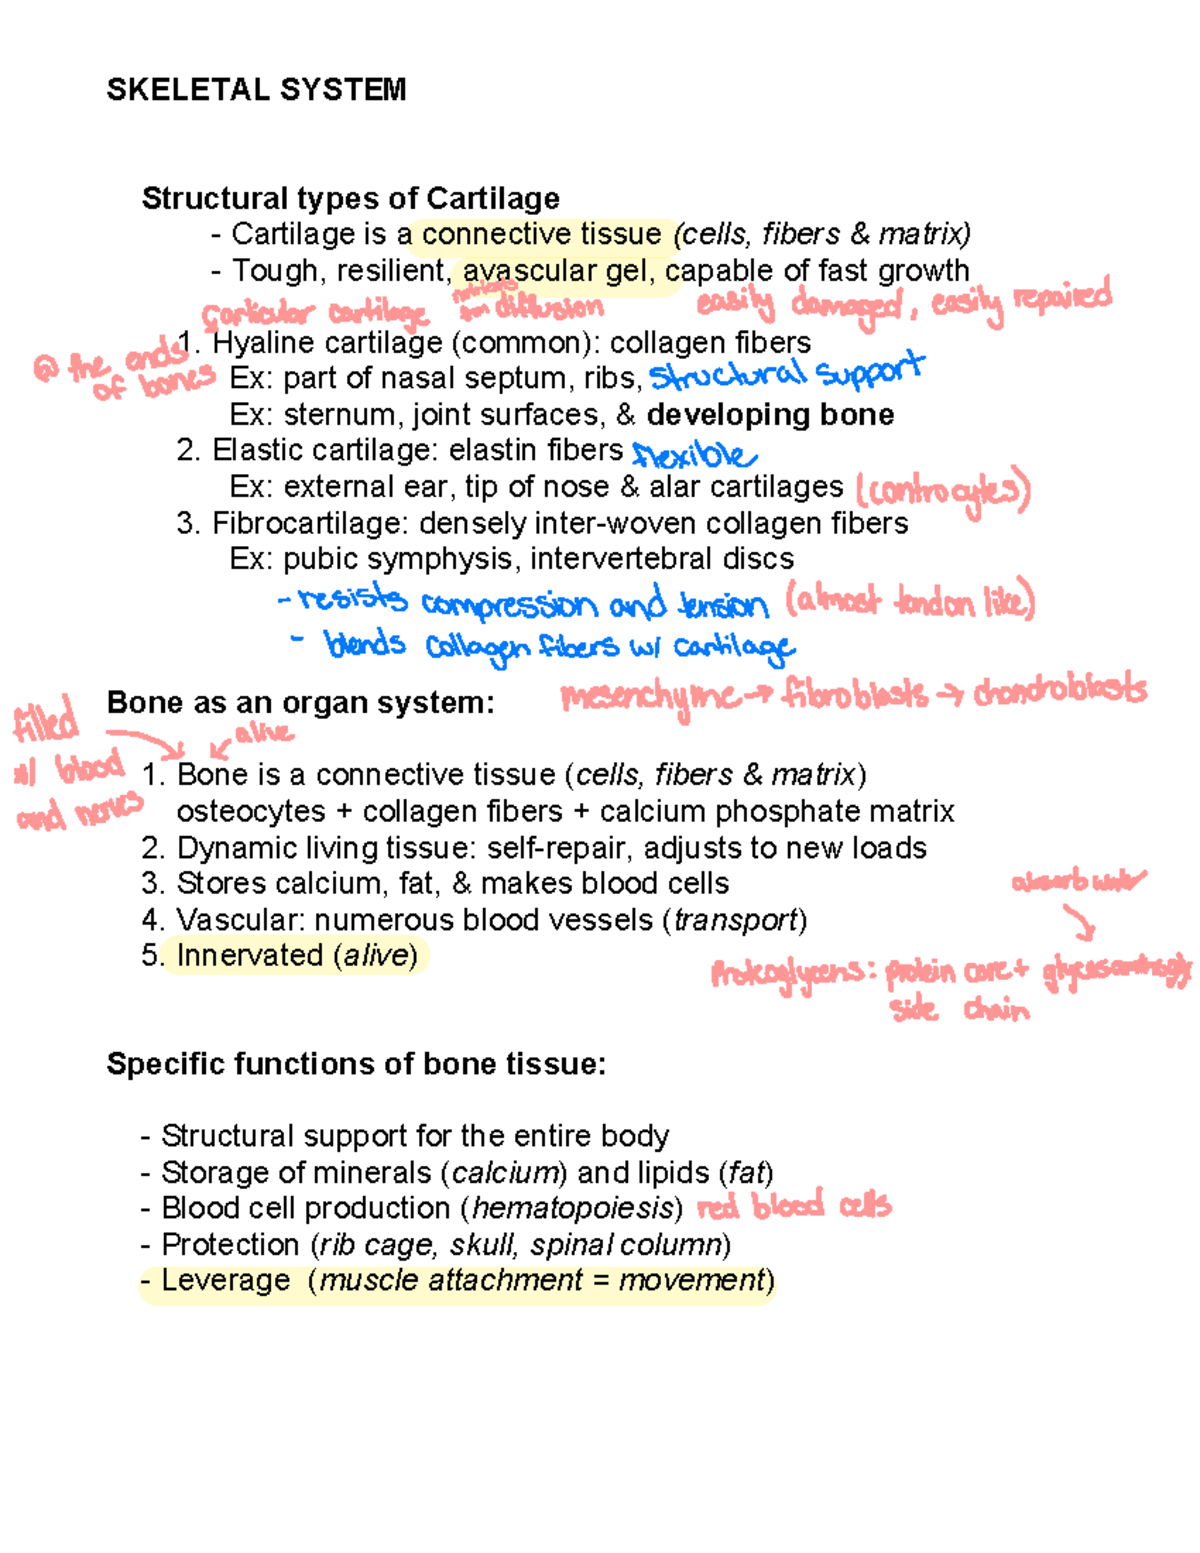 SKELETAL SYSTEM
Structural types of Cartilage
- Cartilage is a connective tissue (cells, fibers & matrix)
- Tough, resilient, avascular gel, capable of fast growth
cartilage
diffusion
easily damaged, easily repaired
@ the ends
of bones
1. Hyaline cartilage (common): collagen fibers
Ex: part of nasal septum, ribs, structural support
Ex: sternum, joint surfaces, & developing bone
2. Elastic cartilage: elastin fibers flexible
Ex: external ear, tip of nose & alar cartilages (controcytes)
3. Fibrocartilage: densely inter-woven collagen fibers
Ex: pubic symphysis, intervertebral discs
- resists compression and tension (almost tendon like)
- blends collagen fibers w/ cartilage
mesenchyme → fibroblasts → chondroblasts
Bone as an organ system:
filled
w/ blood
and nerves
alive
1. Bone is a connective tissue (cells, fibers & matrix)
osteocytes + collagen fibers + calcium phosphate matrix
2. Dynamic living tissue: self-repair, adjusts to new loads
3. Stores calcium, fat, & makes blood cells
absorb water
4. Vascular: numerous blood vessels (transport)
5. Innervated (alive)
protein core +
side chain
Specific functions of bone tissue:
- Structural support for the entire body
- Storage of minerals (calcium) and lipids (fat)
- Blood cell production (hematopoiesis) red blood cells
- Protection (rib cage, skull, spinal column)
- Leverage (muscle attachment = movement)